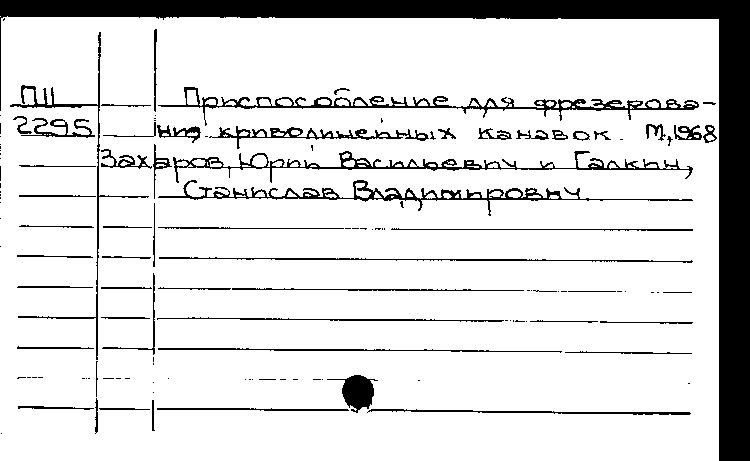 ПШ Приспособление для фрезерова-
2295 ния криволинейных канавок. М,1968
Захаров, Юрий Васильевич и Галкин,
Станислав Владимирович.